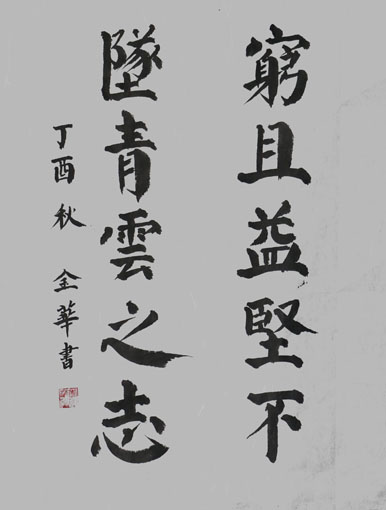 窮且益堅不
墜青雲之志
丁酉秋 金華書